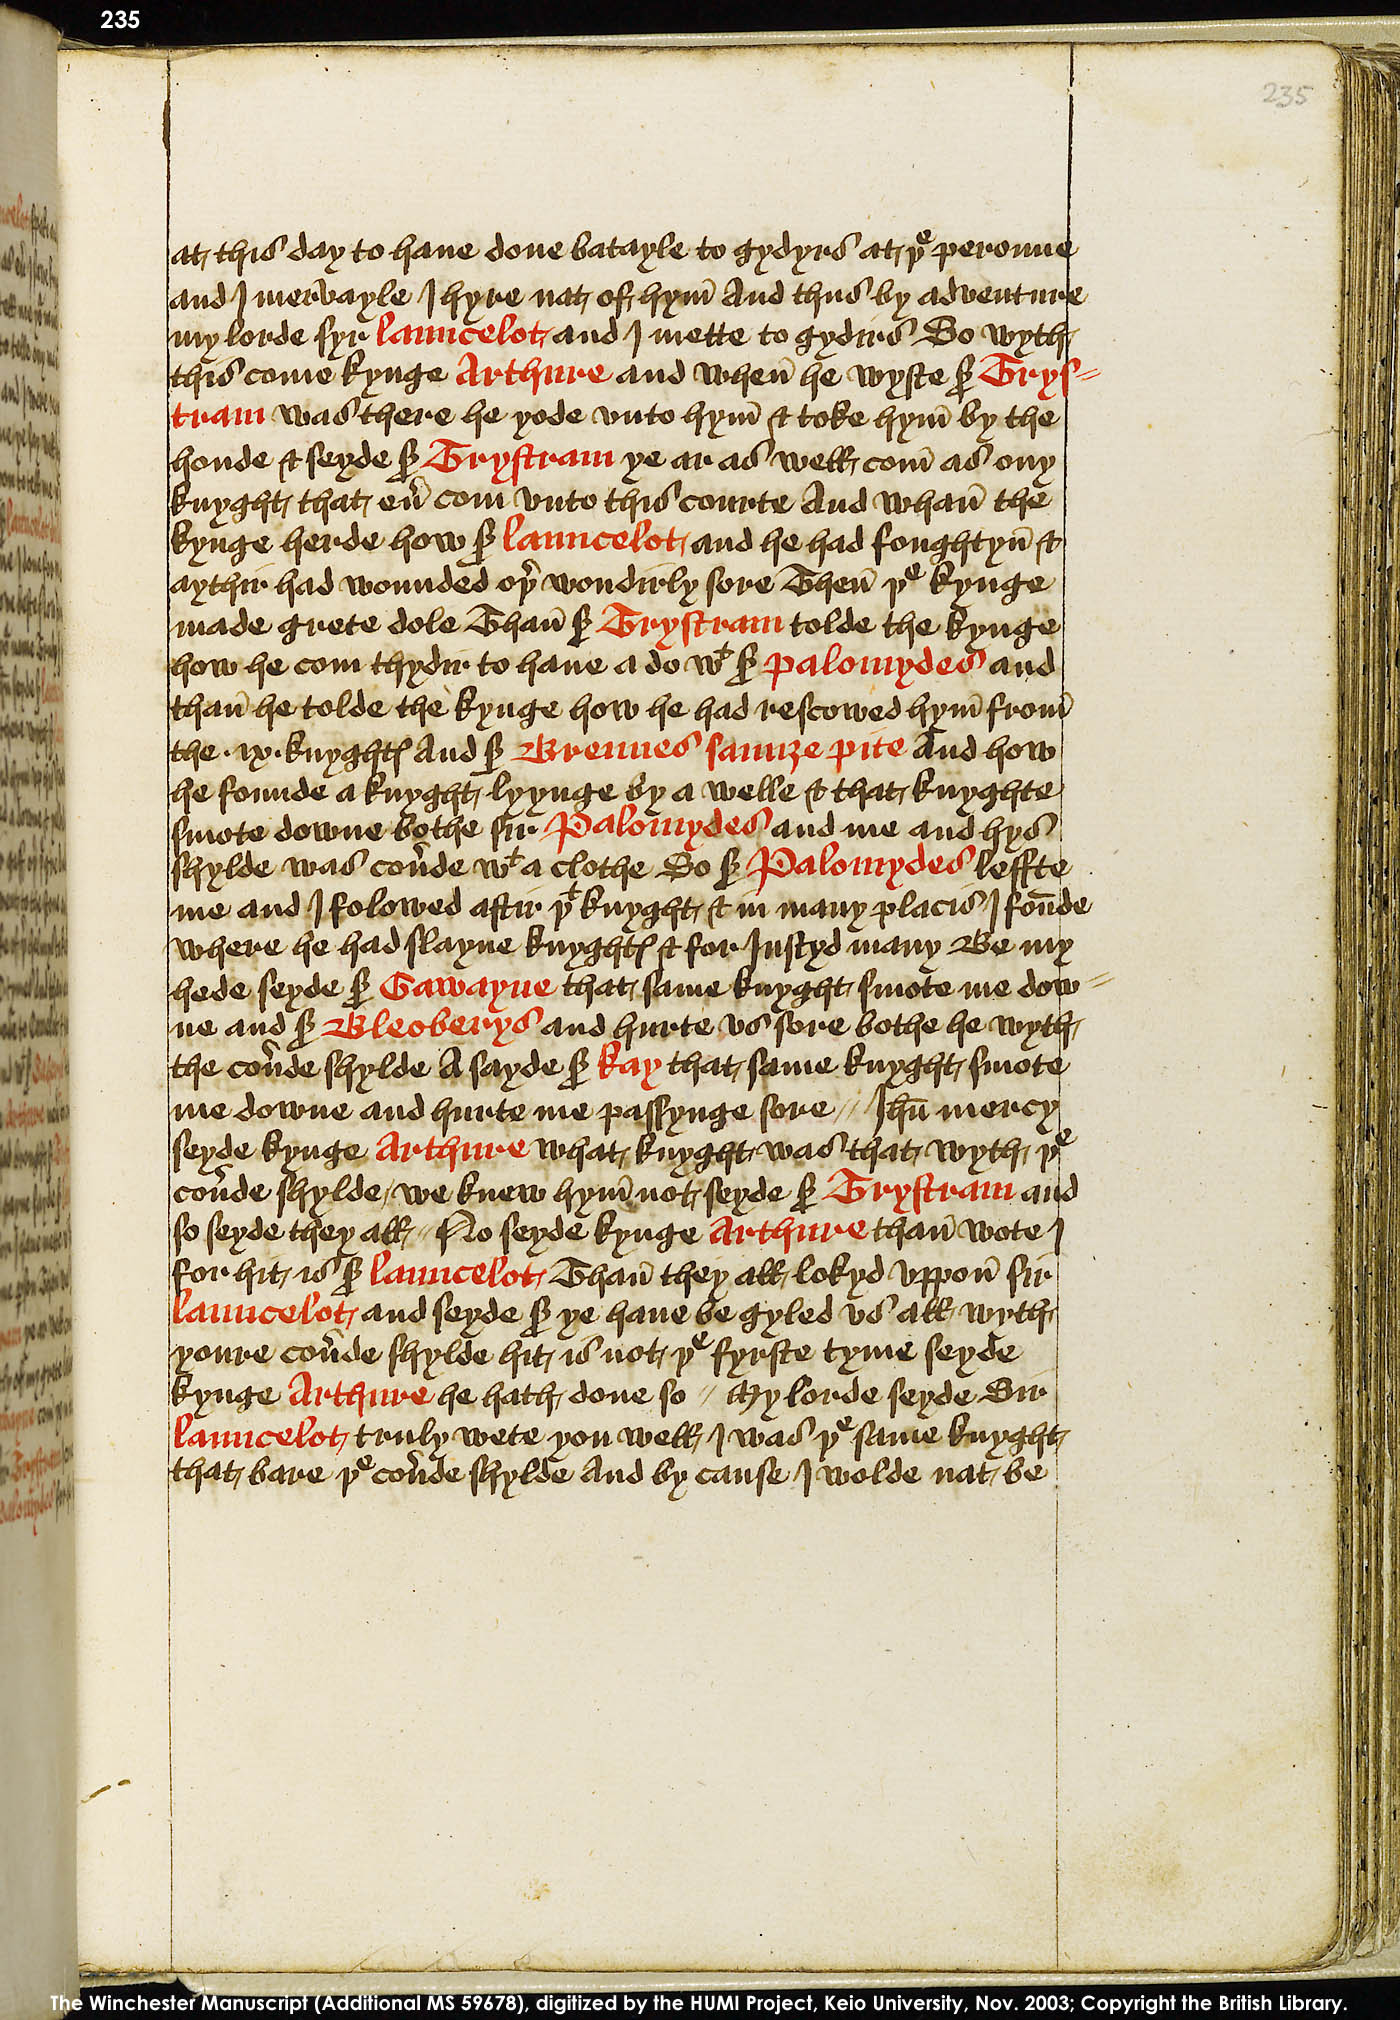 235
235
at this day to haue done batayle to gydyrs at þe peronne
and I mervayle I hyre nat of hym̄ And thus by adventure
my lorde syr launcelot and I mette to gydirs So wyth
this come kynge Arthure and when̄ he wyste sir Trys=
tram was there he yode vnto hym̄ & toke hym̄ by the
honde & seyde sir Trystram ye ar as well com̄ as ony
knyght that eu̕ com vnto this courte And whan̄ the
kynge herde how sir launcelot and he had foughtyn̄ &
aythir had wounded oþ̕ wondirly sore Then̄ þe kynge
made grete dole Than̄ sir Trystram tolde the kynge
how he com thydir to haue a do wt sir palomydes and
than̄ he tolde the kynge how he had rescowed hym̄ from̄
the · ix · knyghtes And sir Brewnes saunze pite And how
he founde a knyght lyynge by a welle & that knyghte
smote downe bothe sir Palomydes and me and hys
shylde was cou̕de wt a clothe So sir Palomydes leffte
me and I folowed aftir þt knyght & in many placis I foun̄de
where he had slayne knyghtes & for Iustyd many Be my
hede seyde sir Gawayne that same knyght smote me dow=
ne and sir Bleoberys and hurte vs sore bothe he wyth
the cou̕de shylde A sayde sir kay that same knyght smote
me downe and hurte me passynge sore // Ihū mercy
seyde kynge Arthure what knyght was that wyth þe
cou̕de shylde / we knew hym̄ not seyde sir Trystram and
so seyde they all // No seyde kynge Arthure than̄ wote I
for hit is sir launcelot Than̄ they all lokyd vppon̄ sir
launcelot and seyde sir ye haue be gyled vs all wyth
youre cou̕de shylde hit is not þe fyrste tyme seyde
kynge Arthure he hath done so // My lorde seyde Sir
launcelot truly wete you well I was þe same knyght
that bare þe cou̕de shylde And by cause I wolde nat be
The Winchester Manuscript (Additional MS 59678), digitized by the HUMI Project, Keio University, Nov. 2003; Copyright the British Library.